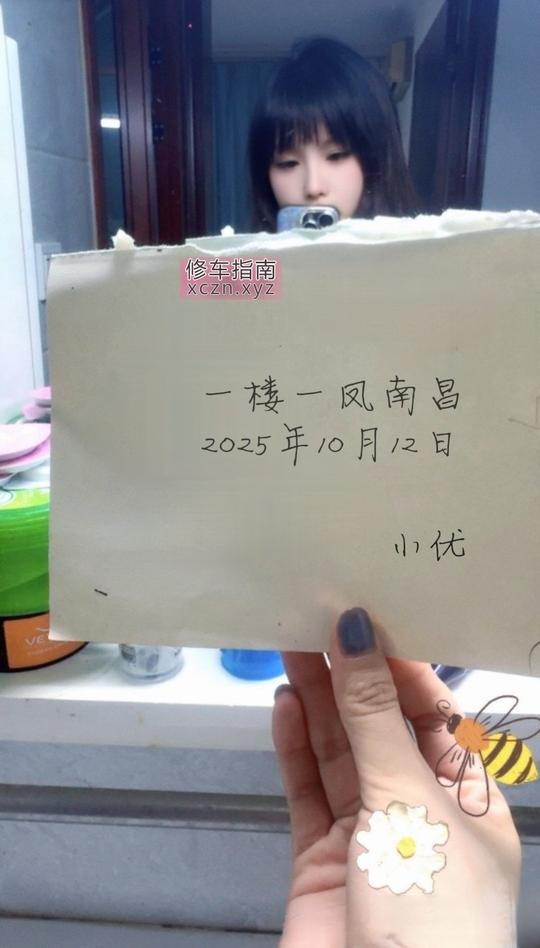 修车指南
xczn.xyz
一楼一凤南昌
2025年10月12日
小优